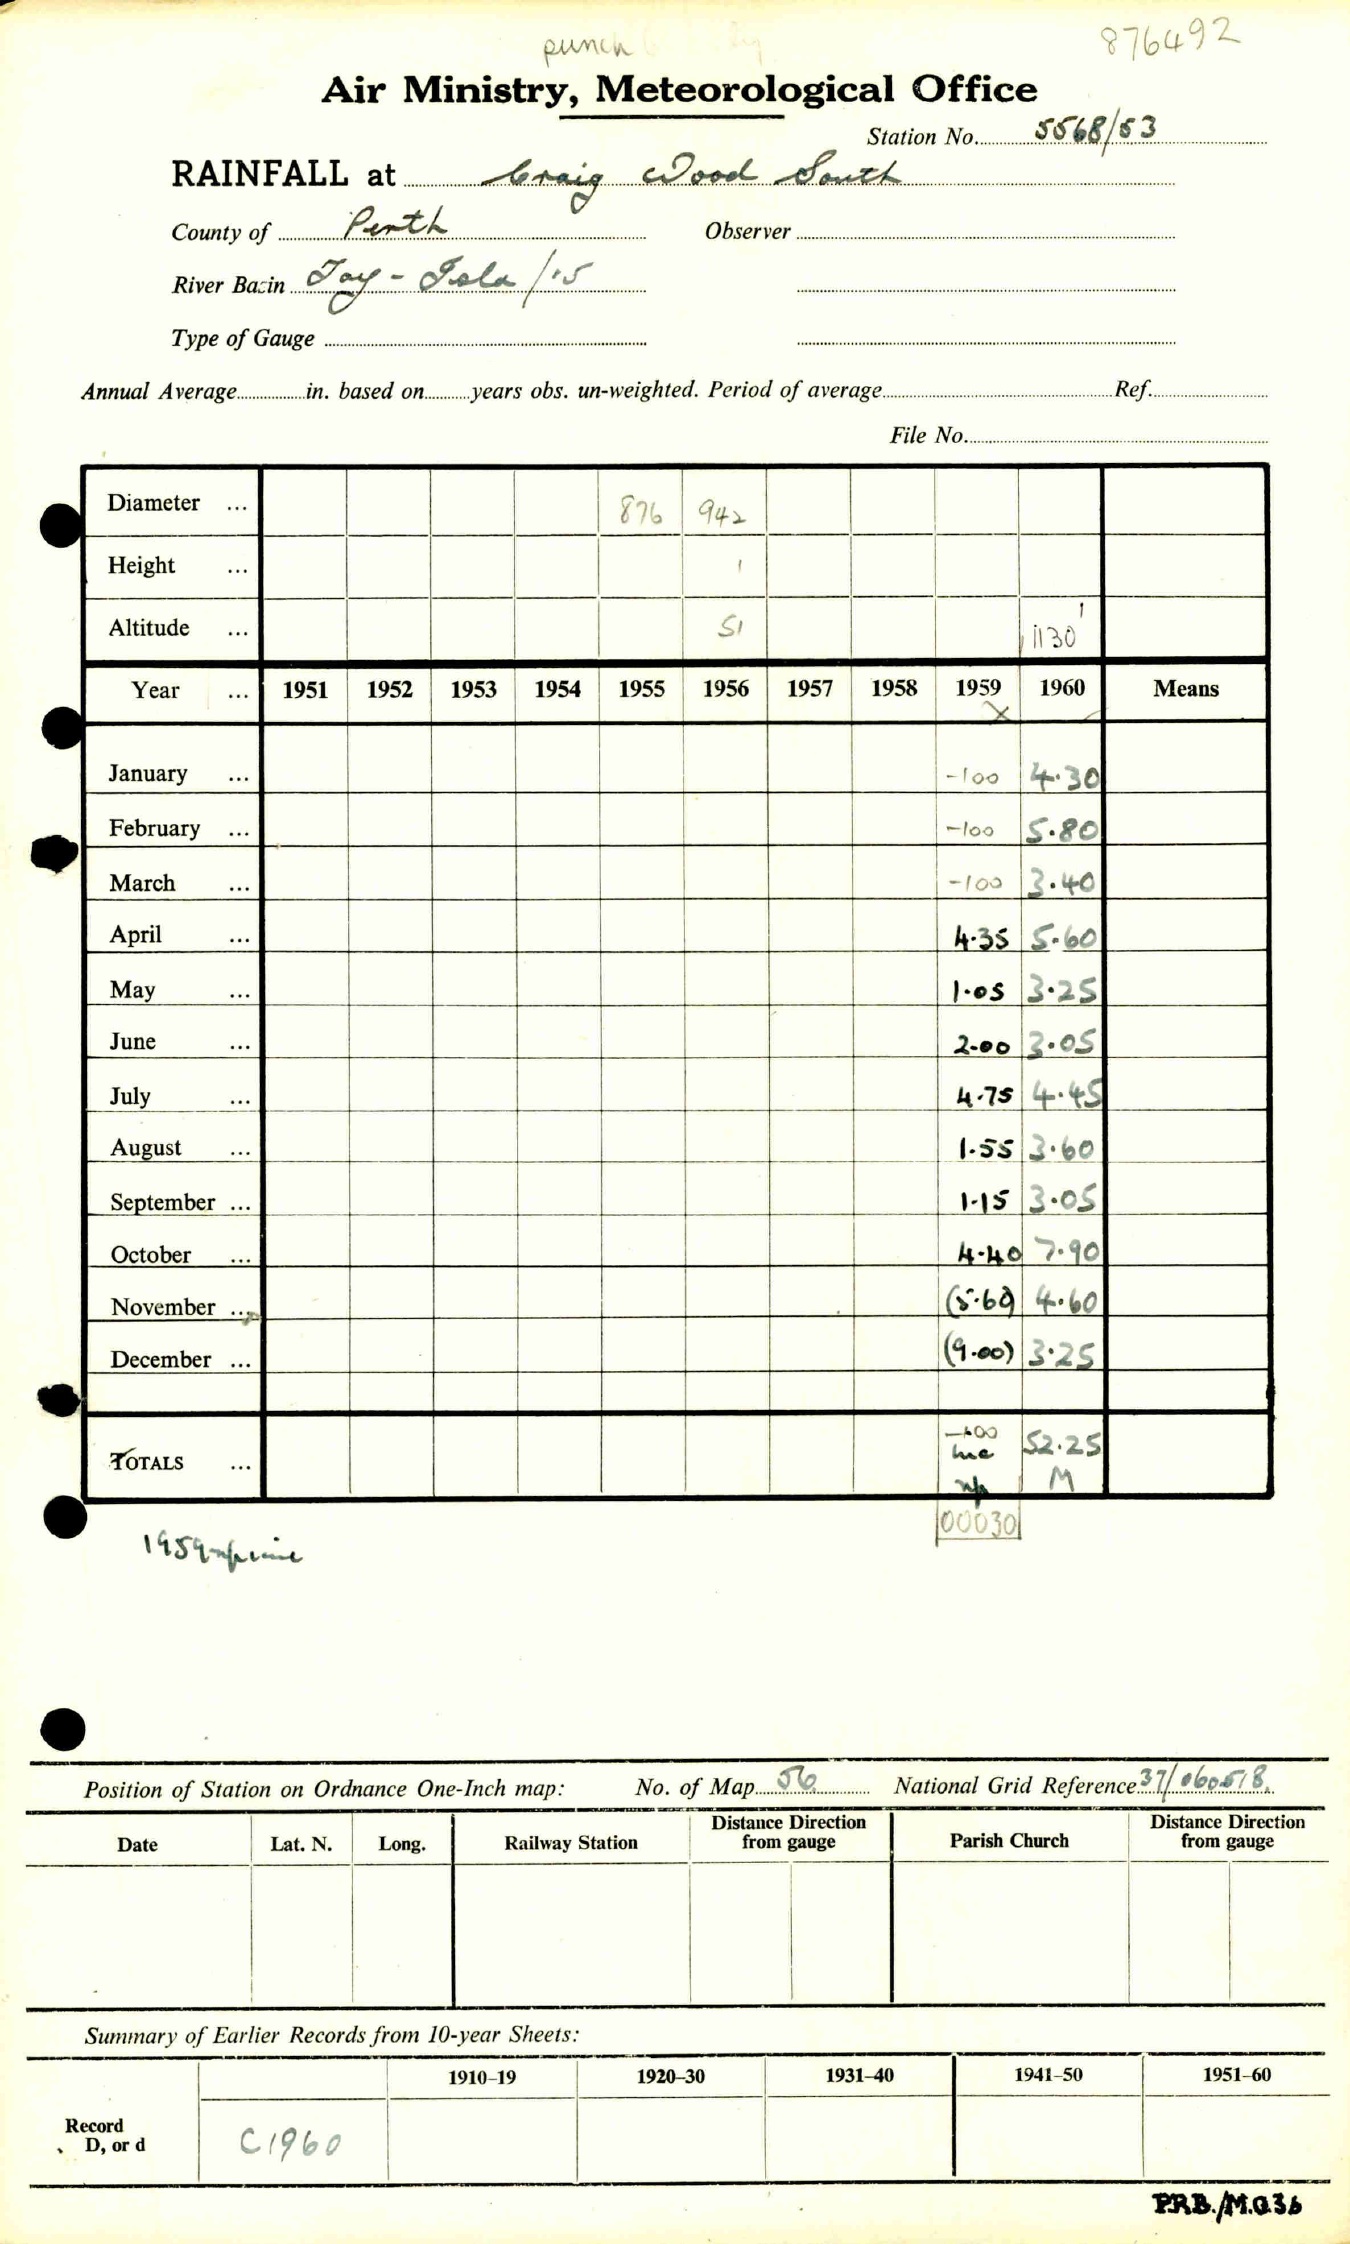 punch
876492
Air Ministry, Meteorological Office
Station No. 5568/53
RAINFALL at Craig Wood South
County of Perth Observer
River Basin Tay - Isla /15
Type of Gauge
Annual Average in. based on years obs. un-weighted. Period of average Ref.
File No.
Diameter ... 876 942
Height ... 1
Altitude ... 51 1130'
Year ... 1951 1952 1953 1954 1955 1956 1957 1958 1959 1960 Means
X
January ... -100 4.30
February ... -100 5.80
March ... -100 3.40
April ... 4.35 5.60
May ... 1.05 3.25
June ... 2.00 3.05
July ... 4.75 4.45
August ... 1.55 3.60
September ... 1.15 3.05
October ... 4.40 7.90
November ... (5.60) 4.60
December ... (9.00) 3.25
TOTALS ... -100 inc np 52.25 M
00030
1959
Position of Station on Ordnance One-Inch map: No. of Map 56 National Grid Reference 37/060518
Date Lat. N. Long. Railway Station Distance Direction from gauge Parish Church Distance Direction from gauge
Summary of Earlier Records from 10-year Sheets:
1910–19 1920–30 1931–40 1941–50 1951–60
Record
D, or d C1960
P.R.B./M.O.36